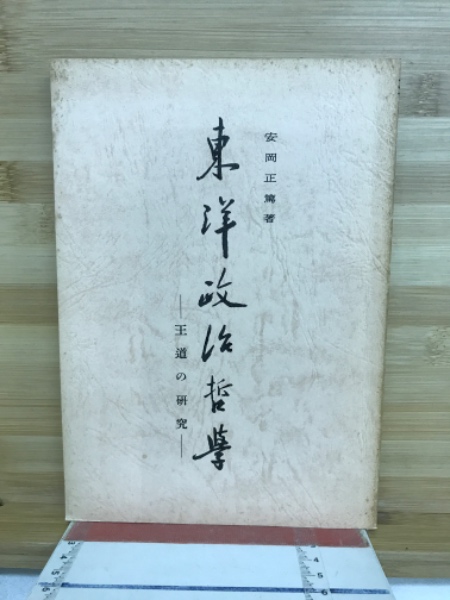 安岡正篤著
東洋政治哲學
―王道の研究―